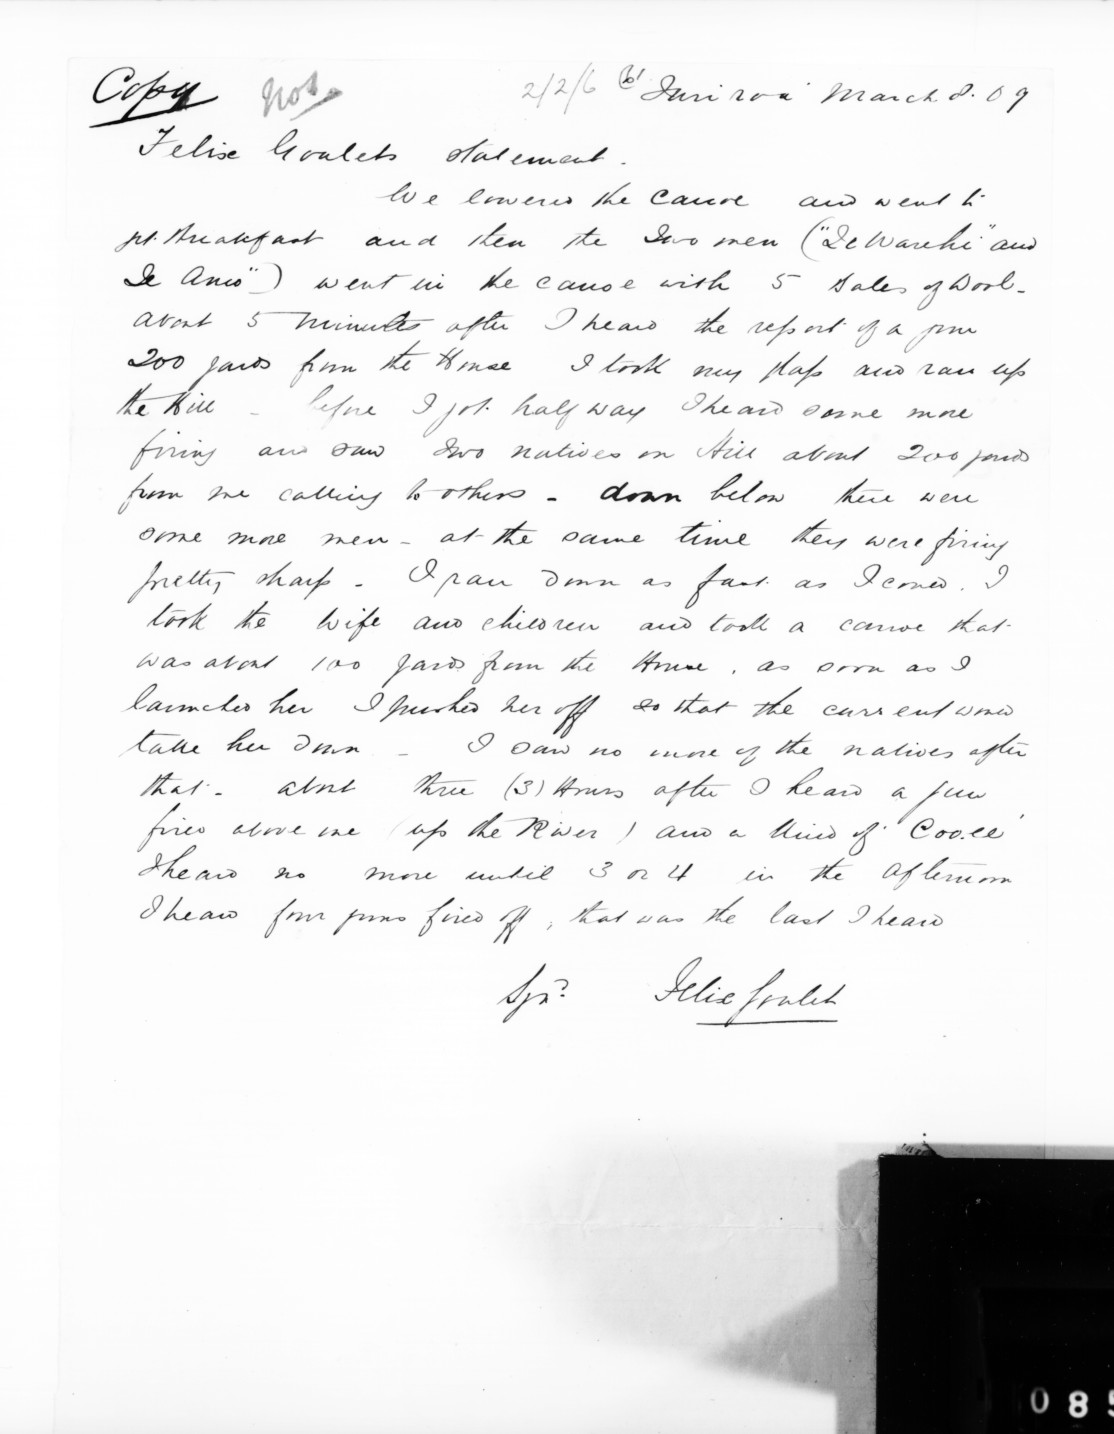 Copy
2/2/6 (b)
Turiroa March 8. 69
Felix Goulets statement.
We lowered the canoe and went to
gt. Breakfast and then the Two men ("Te Warihi" and
Te Amo") went in the canoe with 5 Bales of Wool -
about 5 Minutes after I heard the report of a gun
200 yards from the House I took my flap and ran up
the Hill - before I got half way I heard some more
firing and saw Two natives on Hill about 200 yards
from me calling to others - down below there were
some more men - at the same time they were firing
pretty sharp - I ran down as fast as I coued. I
took the Wife and children and took a canoe that
was about 100 yards from the House, as soon as I
launched her I pushed her off so that the current woued
take her down - I saw no more of the natives after
that - about three (3) Hours after I heard a gun
fired above me (up the River) and a kind of 'Coo.ee'
I heard no more until 3 or 4 in the afternoon
I heard four guns fired off, that was the last I heard
Sgn? Felix Goulet
085